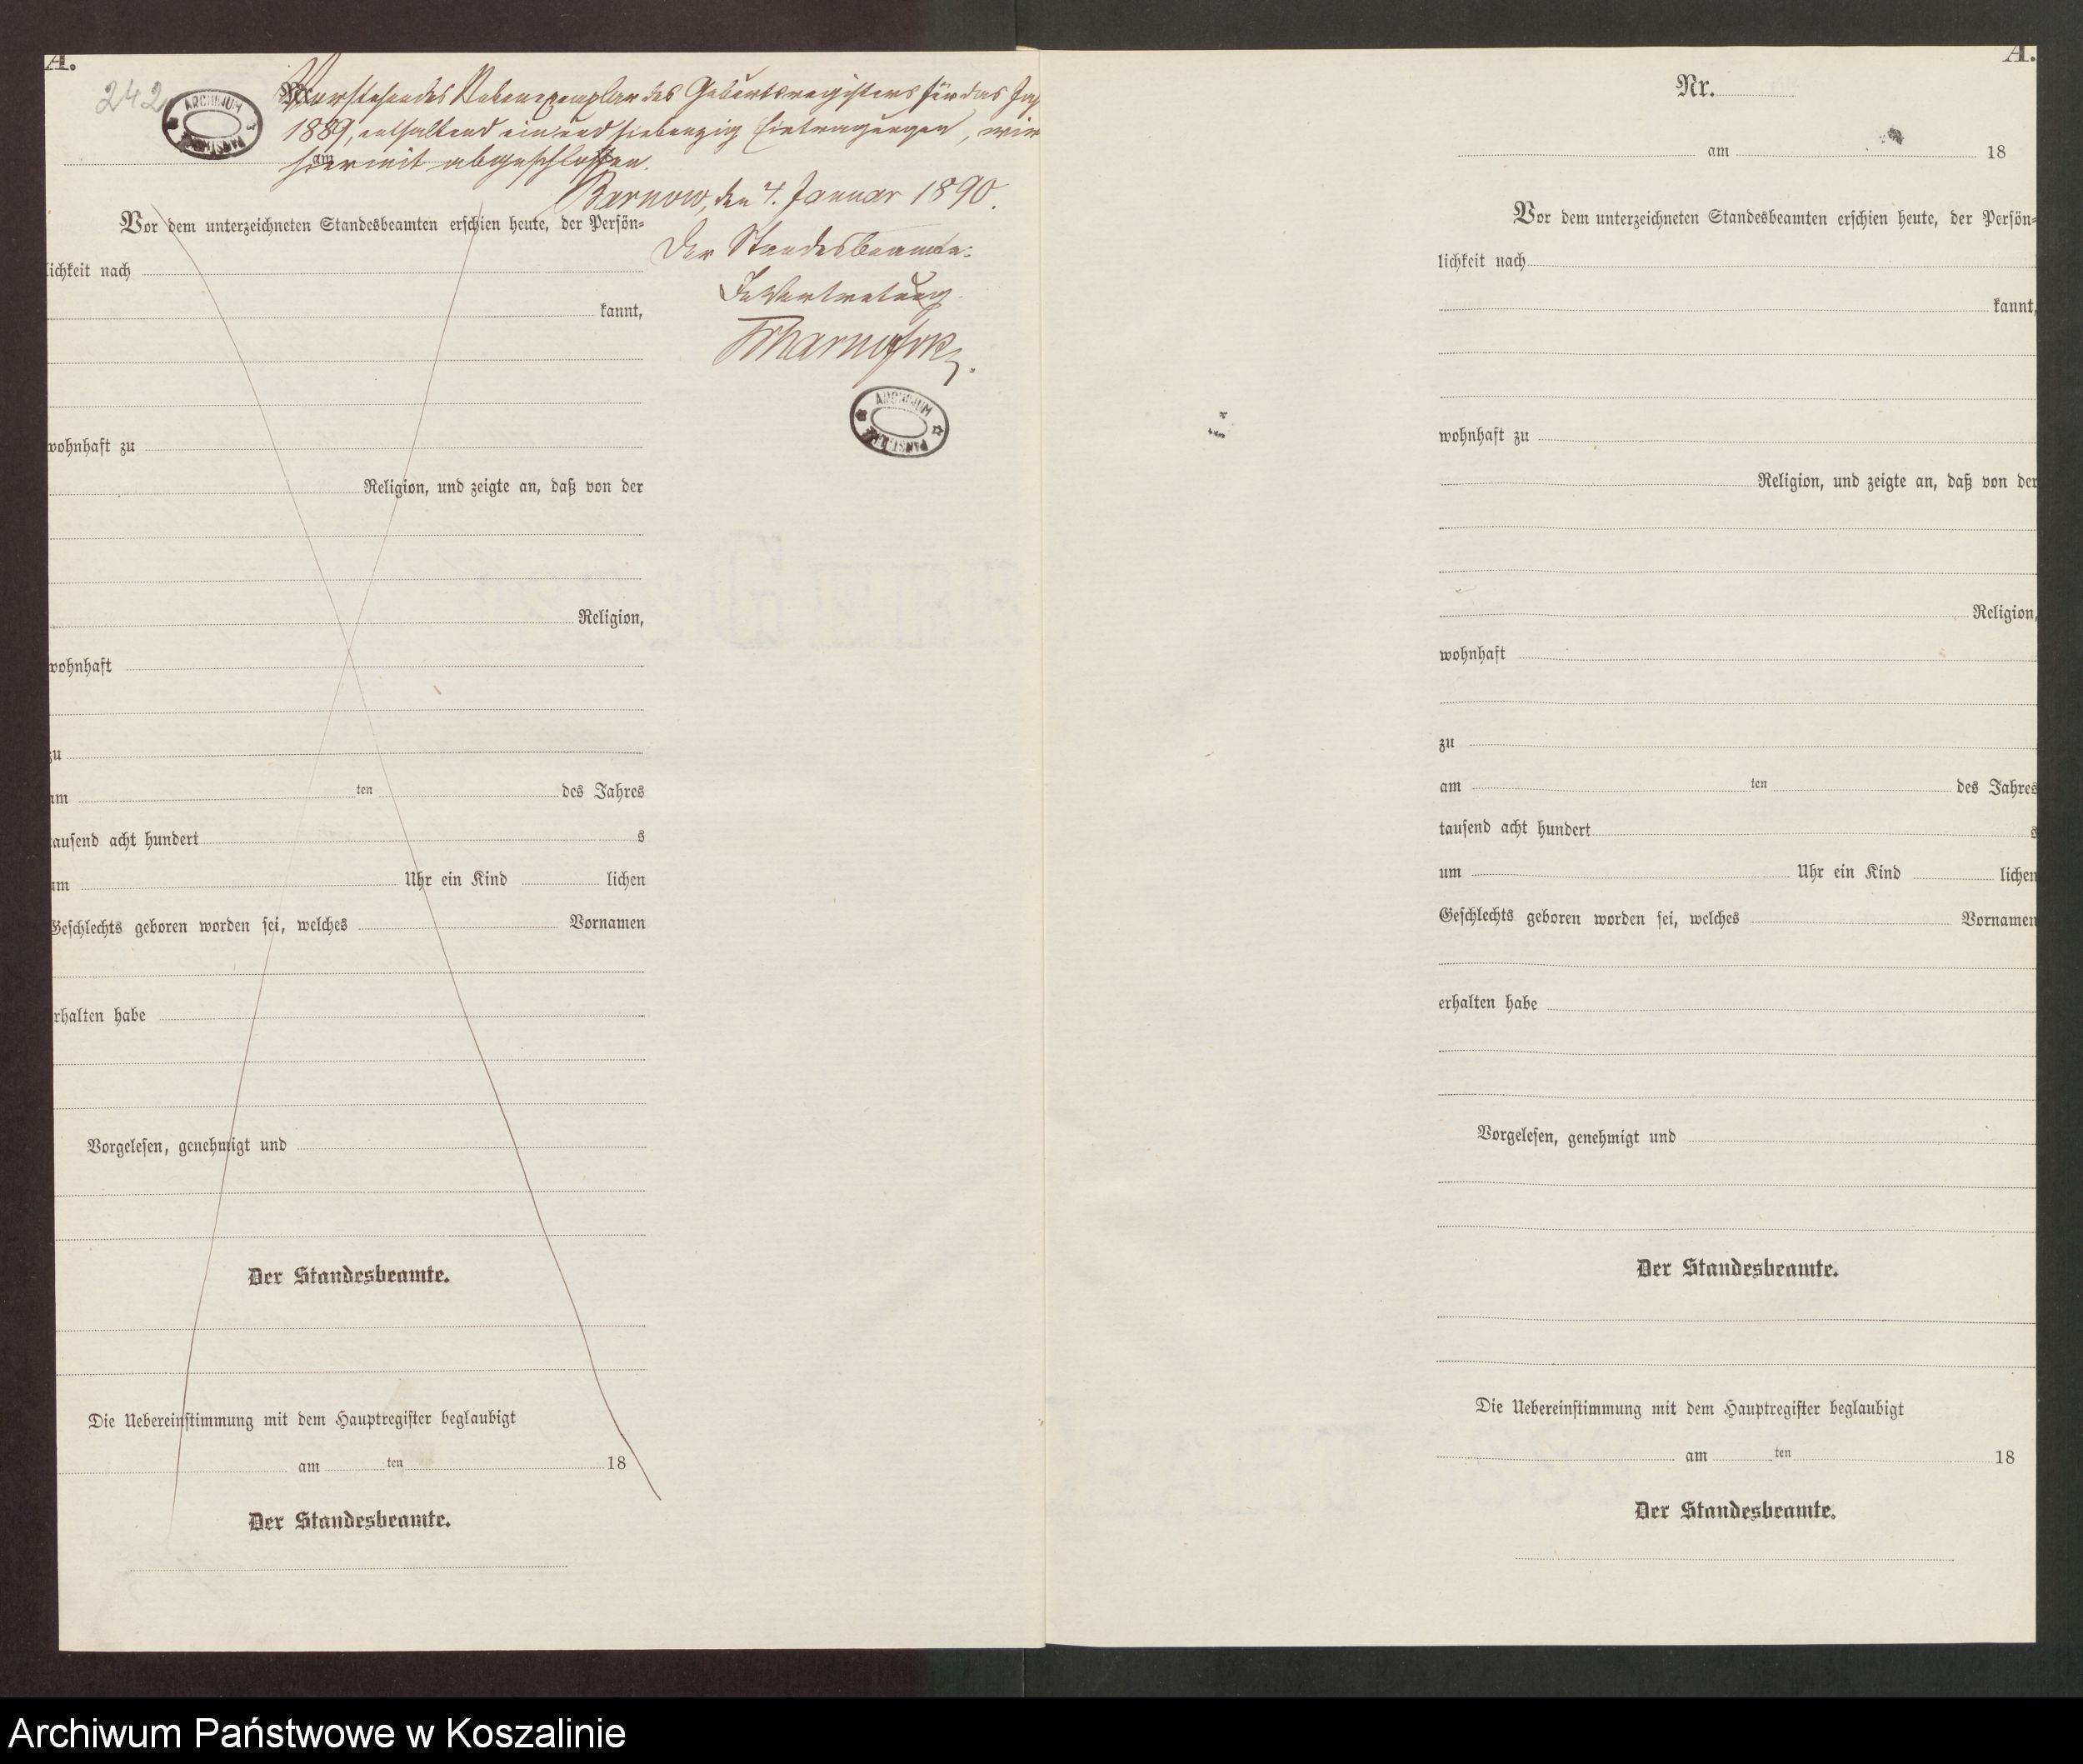 A.
242
ARCHIWUM PAŃSTWOWE
Vorstehendes Nebenexemplar des Geburtsregisters für das Jah
1889, enthaltend ein und siebenzig Eintragungen, wir
am
hiermit abgeschlossen.
Barnow, den 4. Januar 1890.
Der Standesbeamte.
In Vertretung
ARCHIWUM PAŃSTWOWE
Vor dem unterzeichneten Standesbeamten erschien heute, der Persön-
lichkeit nach
kannt,
wohnhaft zu
Religion, und zeigte an, daß von der
Religion,
wohnhaft
zu
am ten des Jahres
tausend acht hundert s
um Uhr ein Kind lichen
Geschlechts geboren worden sei, welches Vornamen
erhalten habe
Vorgelesen, genehmigt und
Der Standesbeamte.
Die Uebereinstimmung mit dem Hauptregister beglaubigt
am ten 18
Der Standesbeamte.
A.
Nr.
am 18
Vor dem unterzeichneten Standesbeamten erschien heute, der Persön-
lichkeit nach
kannt,
wohnhaft zu
Religion, und zeigte an, daß von der
Religion,
wohnhaft
zu
am ten des Jahres
tausend acht hundert s
um Uhr ein Kind lichen
Geschlechts geboren worden sei, welches Vornamen
erhalten habe
Vorgelesen, genehmigt und
Der Standesbeamte.
Die Uebereinstimmung mit dem Hauptregister beglaubigt
am ten 18
Der Standesbeamte.
Archiwum Państwowe w Koszalinie